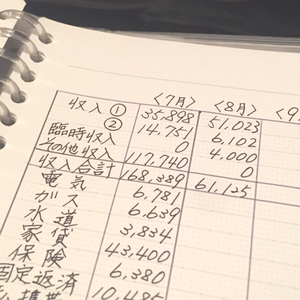 〈7月〉 〈8月〉 〈9
収入 ① 35,898 51,023
② 14,751 6,102
臨時収入 0 4,000
その他収入 117,740 0
収入合計 168,389 61,125
電気 6,781
ガス 6,639
水道 3,834
家賃 43,400
保険 6,380
固定返済 10,485
携帯